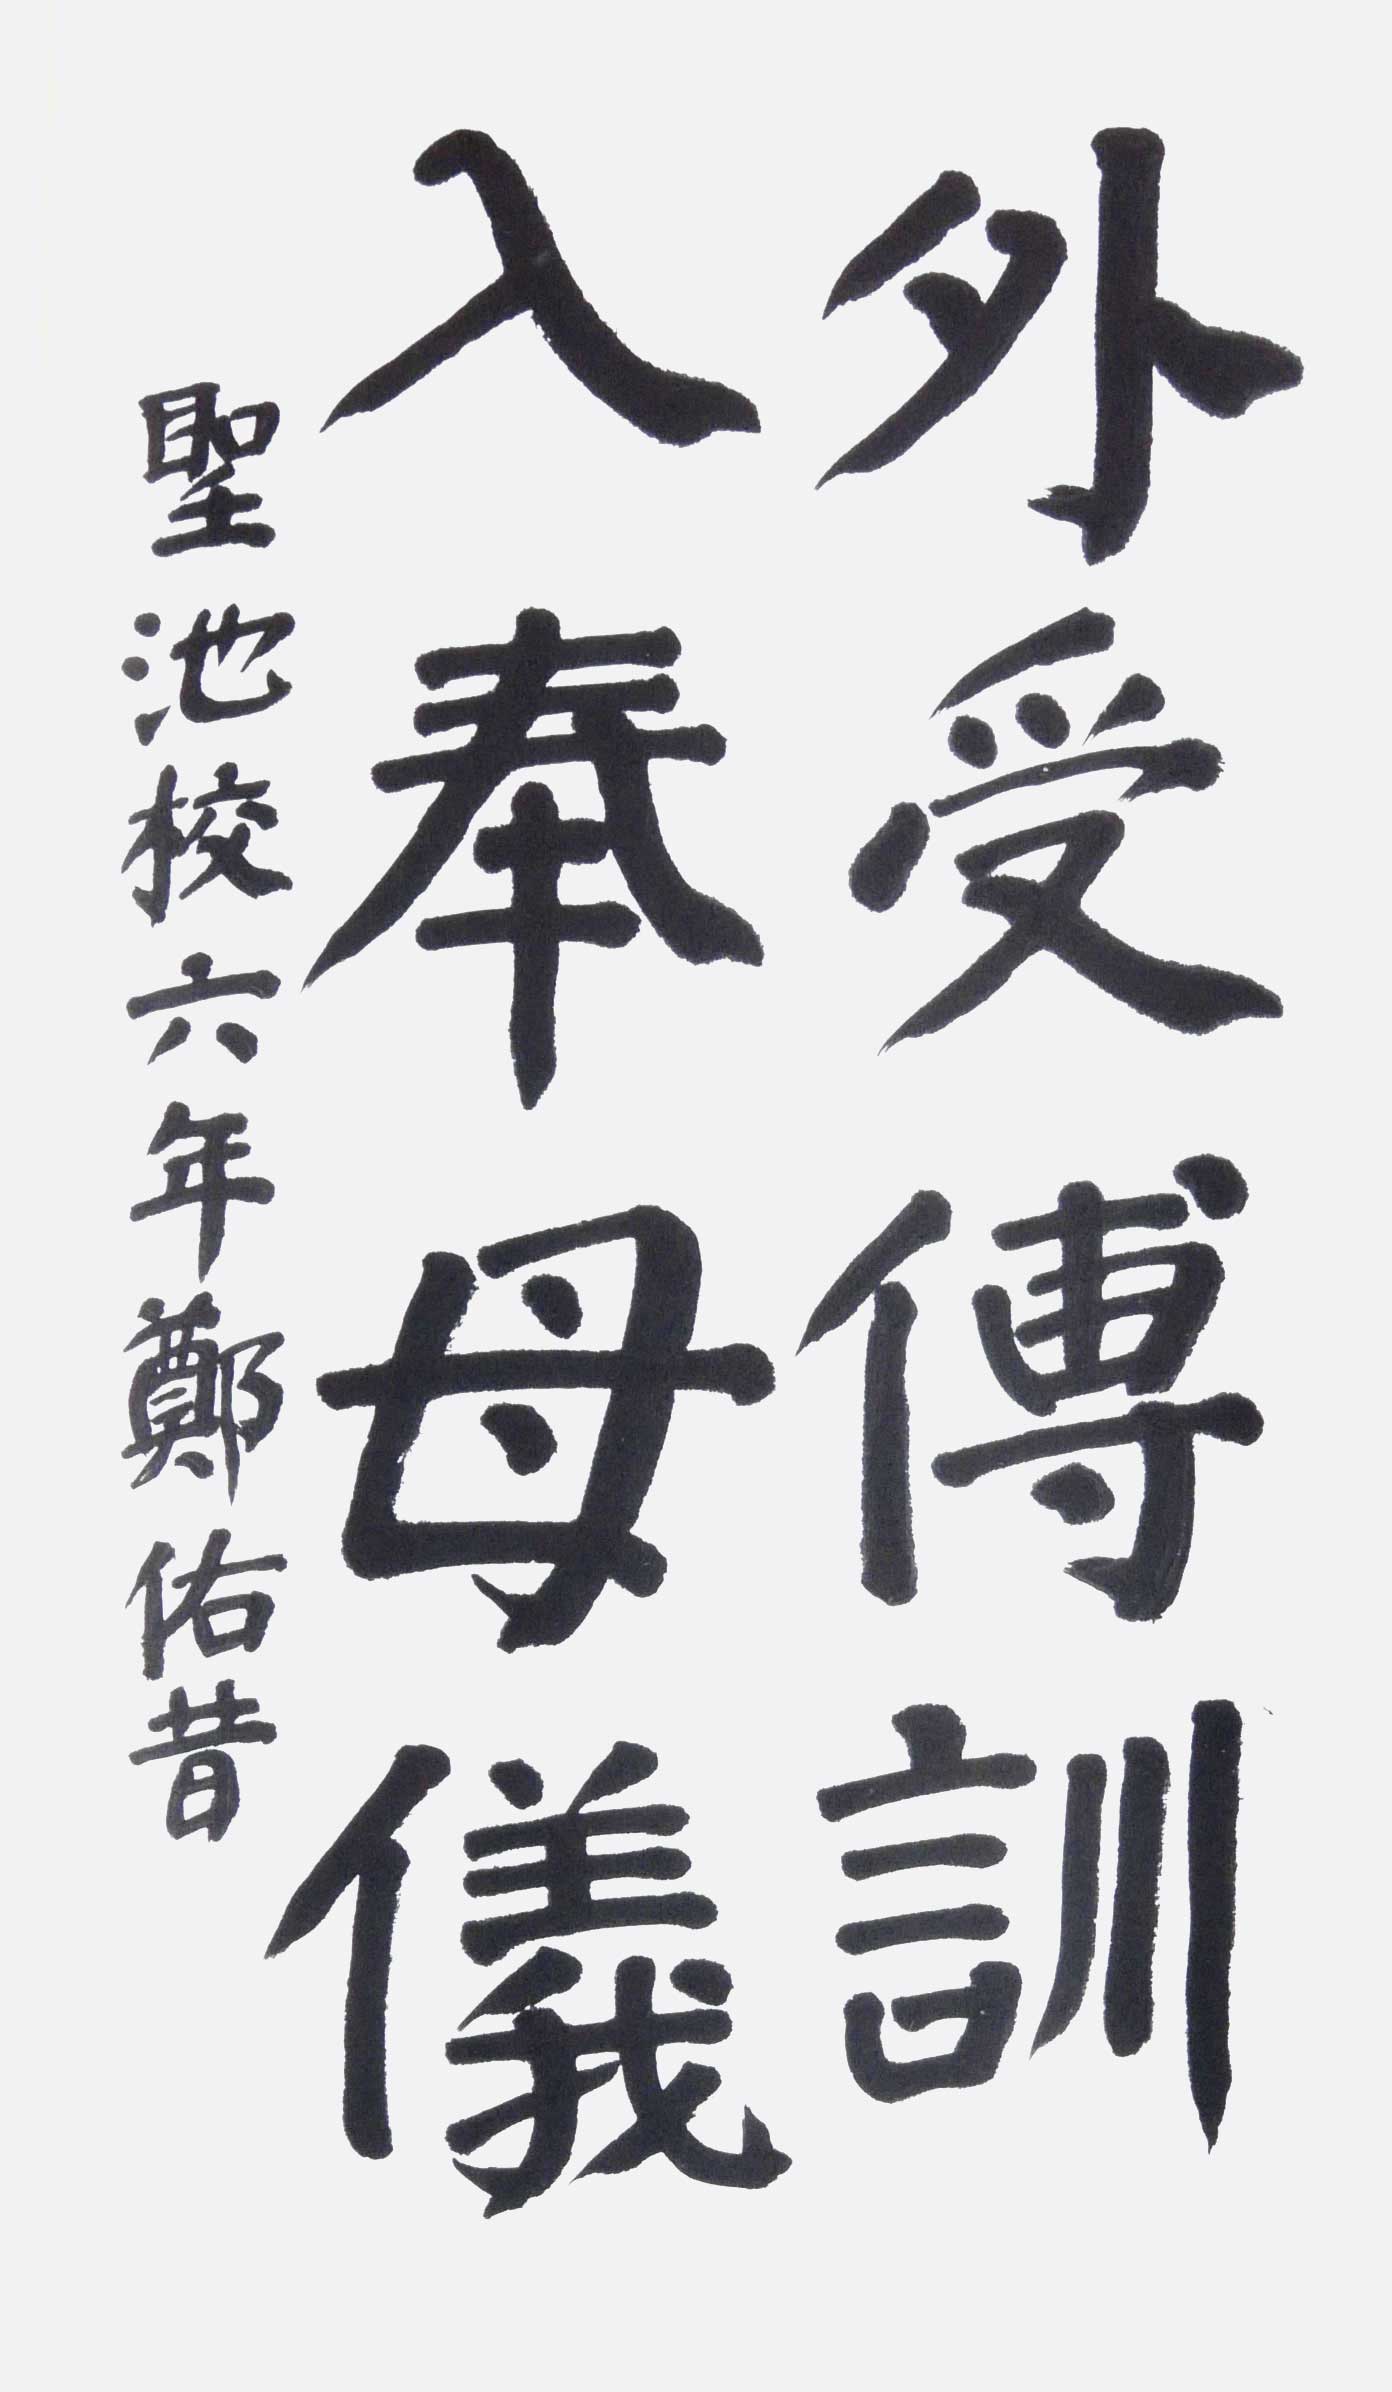 外受傅訓
入奉母儀
聖池校六年鄭佑昔